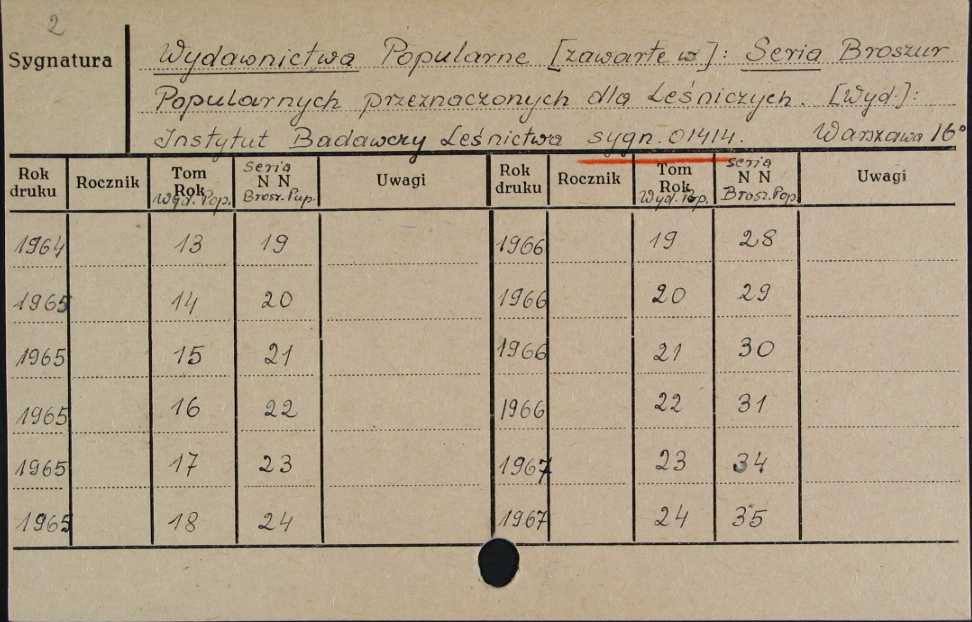 2
Sygnatura
Wydawnictwa Popularne [zawarte w]: Seria Broszur
Popularnych przeznaczonych dla Leśniczych. [Wyd.]:
Instytut Badawczy Leśnictwa sygn. 01414. Warszawa 16°
Rok druku Rocznik Tom Rok Wyd. Pop. Seria N N Brosz. Pop. Uwagi Rok druku Rocznik Tom Rok Wyd. Pop. Seria N N Brosz. Pop. Uwagi
1964 13 19 1966 19 28
1965 14 20 1966 20 29
1965 15 21 1966 21 30
1965 16 22 1966 22 31
1965 17 23 1967 23 34
1965 18 24 1967 24 35